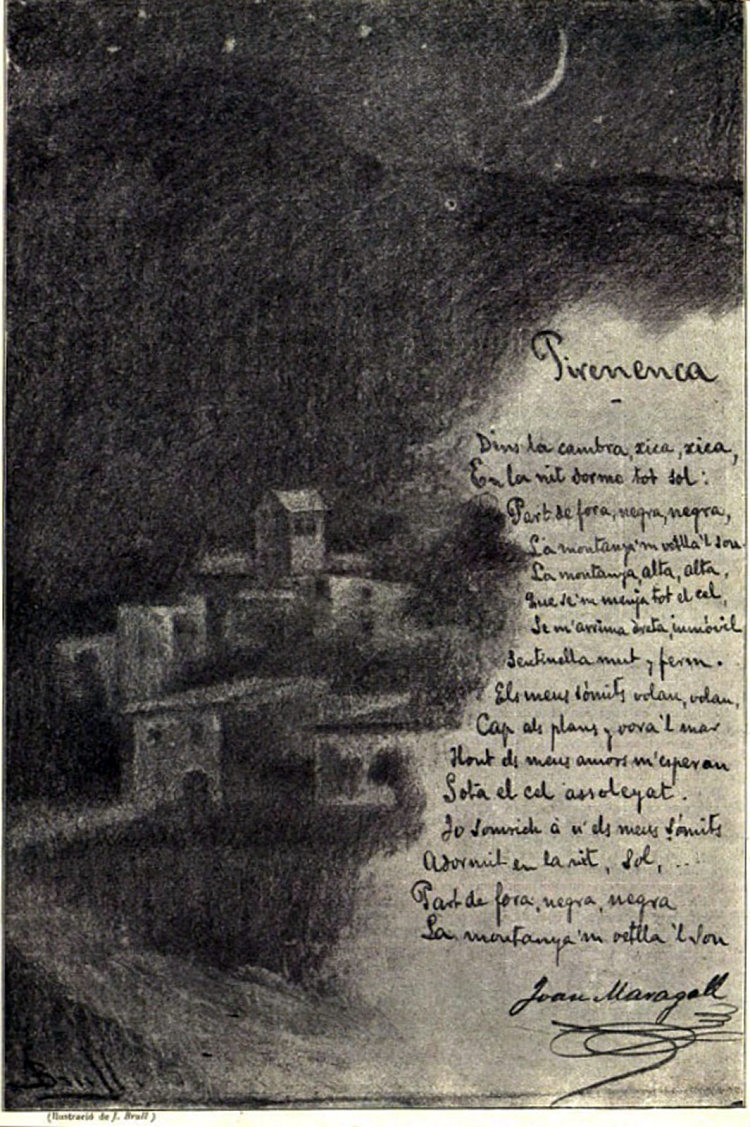 Pirenenca
Dins la cambra, xica, xica,
En la nit dormo tot sol:
Part de fora, negra, negra,
La montanya'm vetlla'l son.
La montanya, alta, alta,
Que se'm menja tot el cel,
Se m'arrima dreta, inmóvil,
Sentinella mut y ferm.
Els meus sómits volan, volan,
Cap als plans y vora'l mar
Hont els meus amors m'esperan
Sota el cel assoleyat.
Jo somrich á n' els meus sómits
Adormit en la nit, sol, ...
Part de fora, negra, negra
La montanya'm vetlla'l son
Joan Maragall
Brull
(Ilustració de J. Brull)